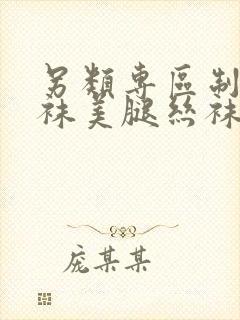 另類專區制
袜美腿丝袜
庞某某